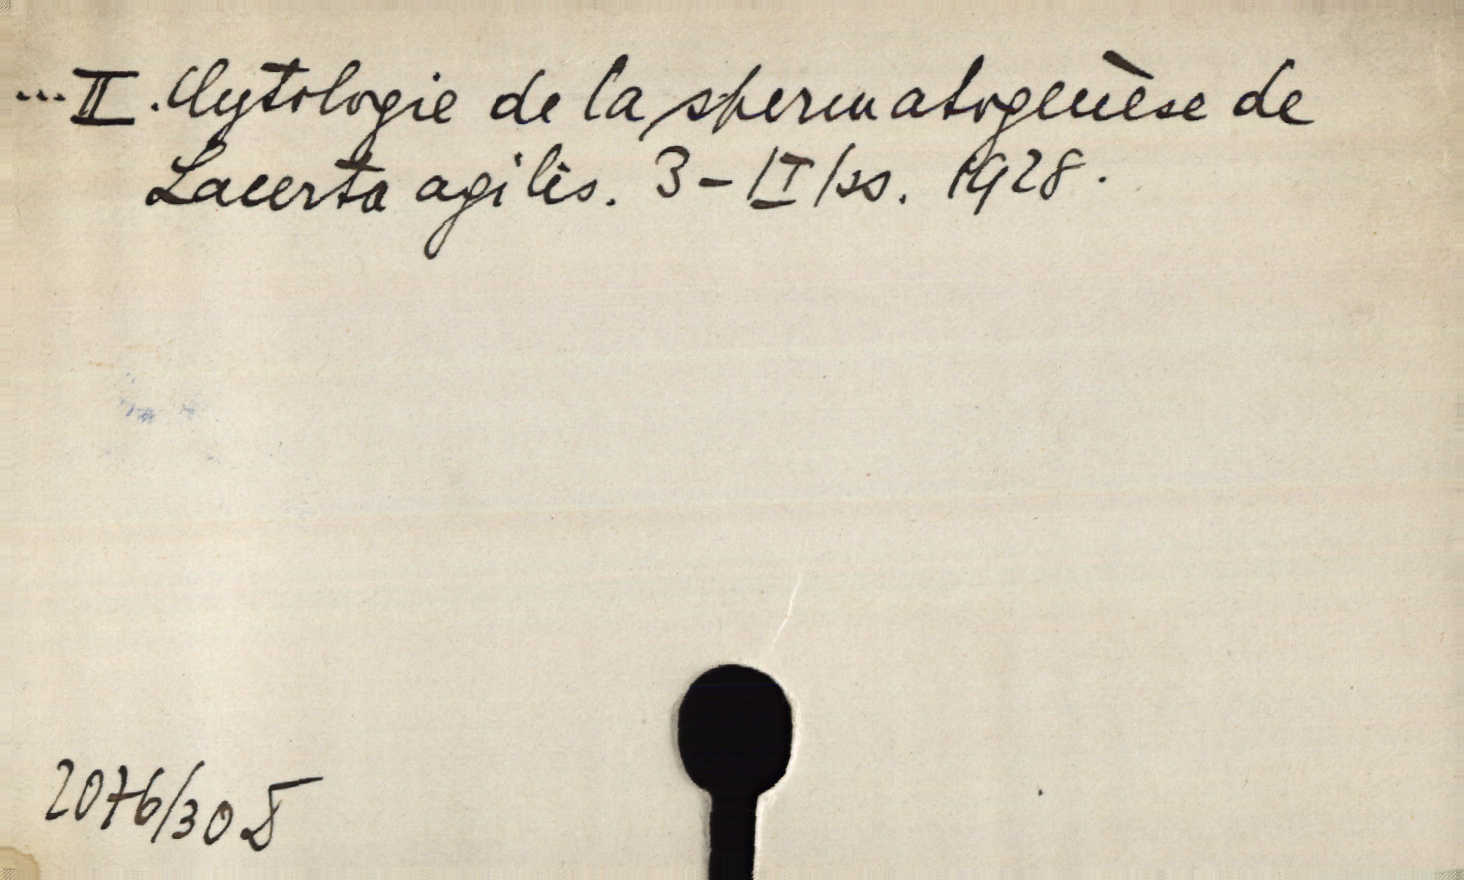 ...II. Cytologie de la spermatogenèse de
Lacerta agilis. 3-II/ss. 1928.
2076/30 Б